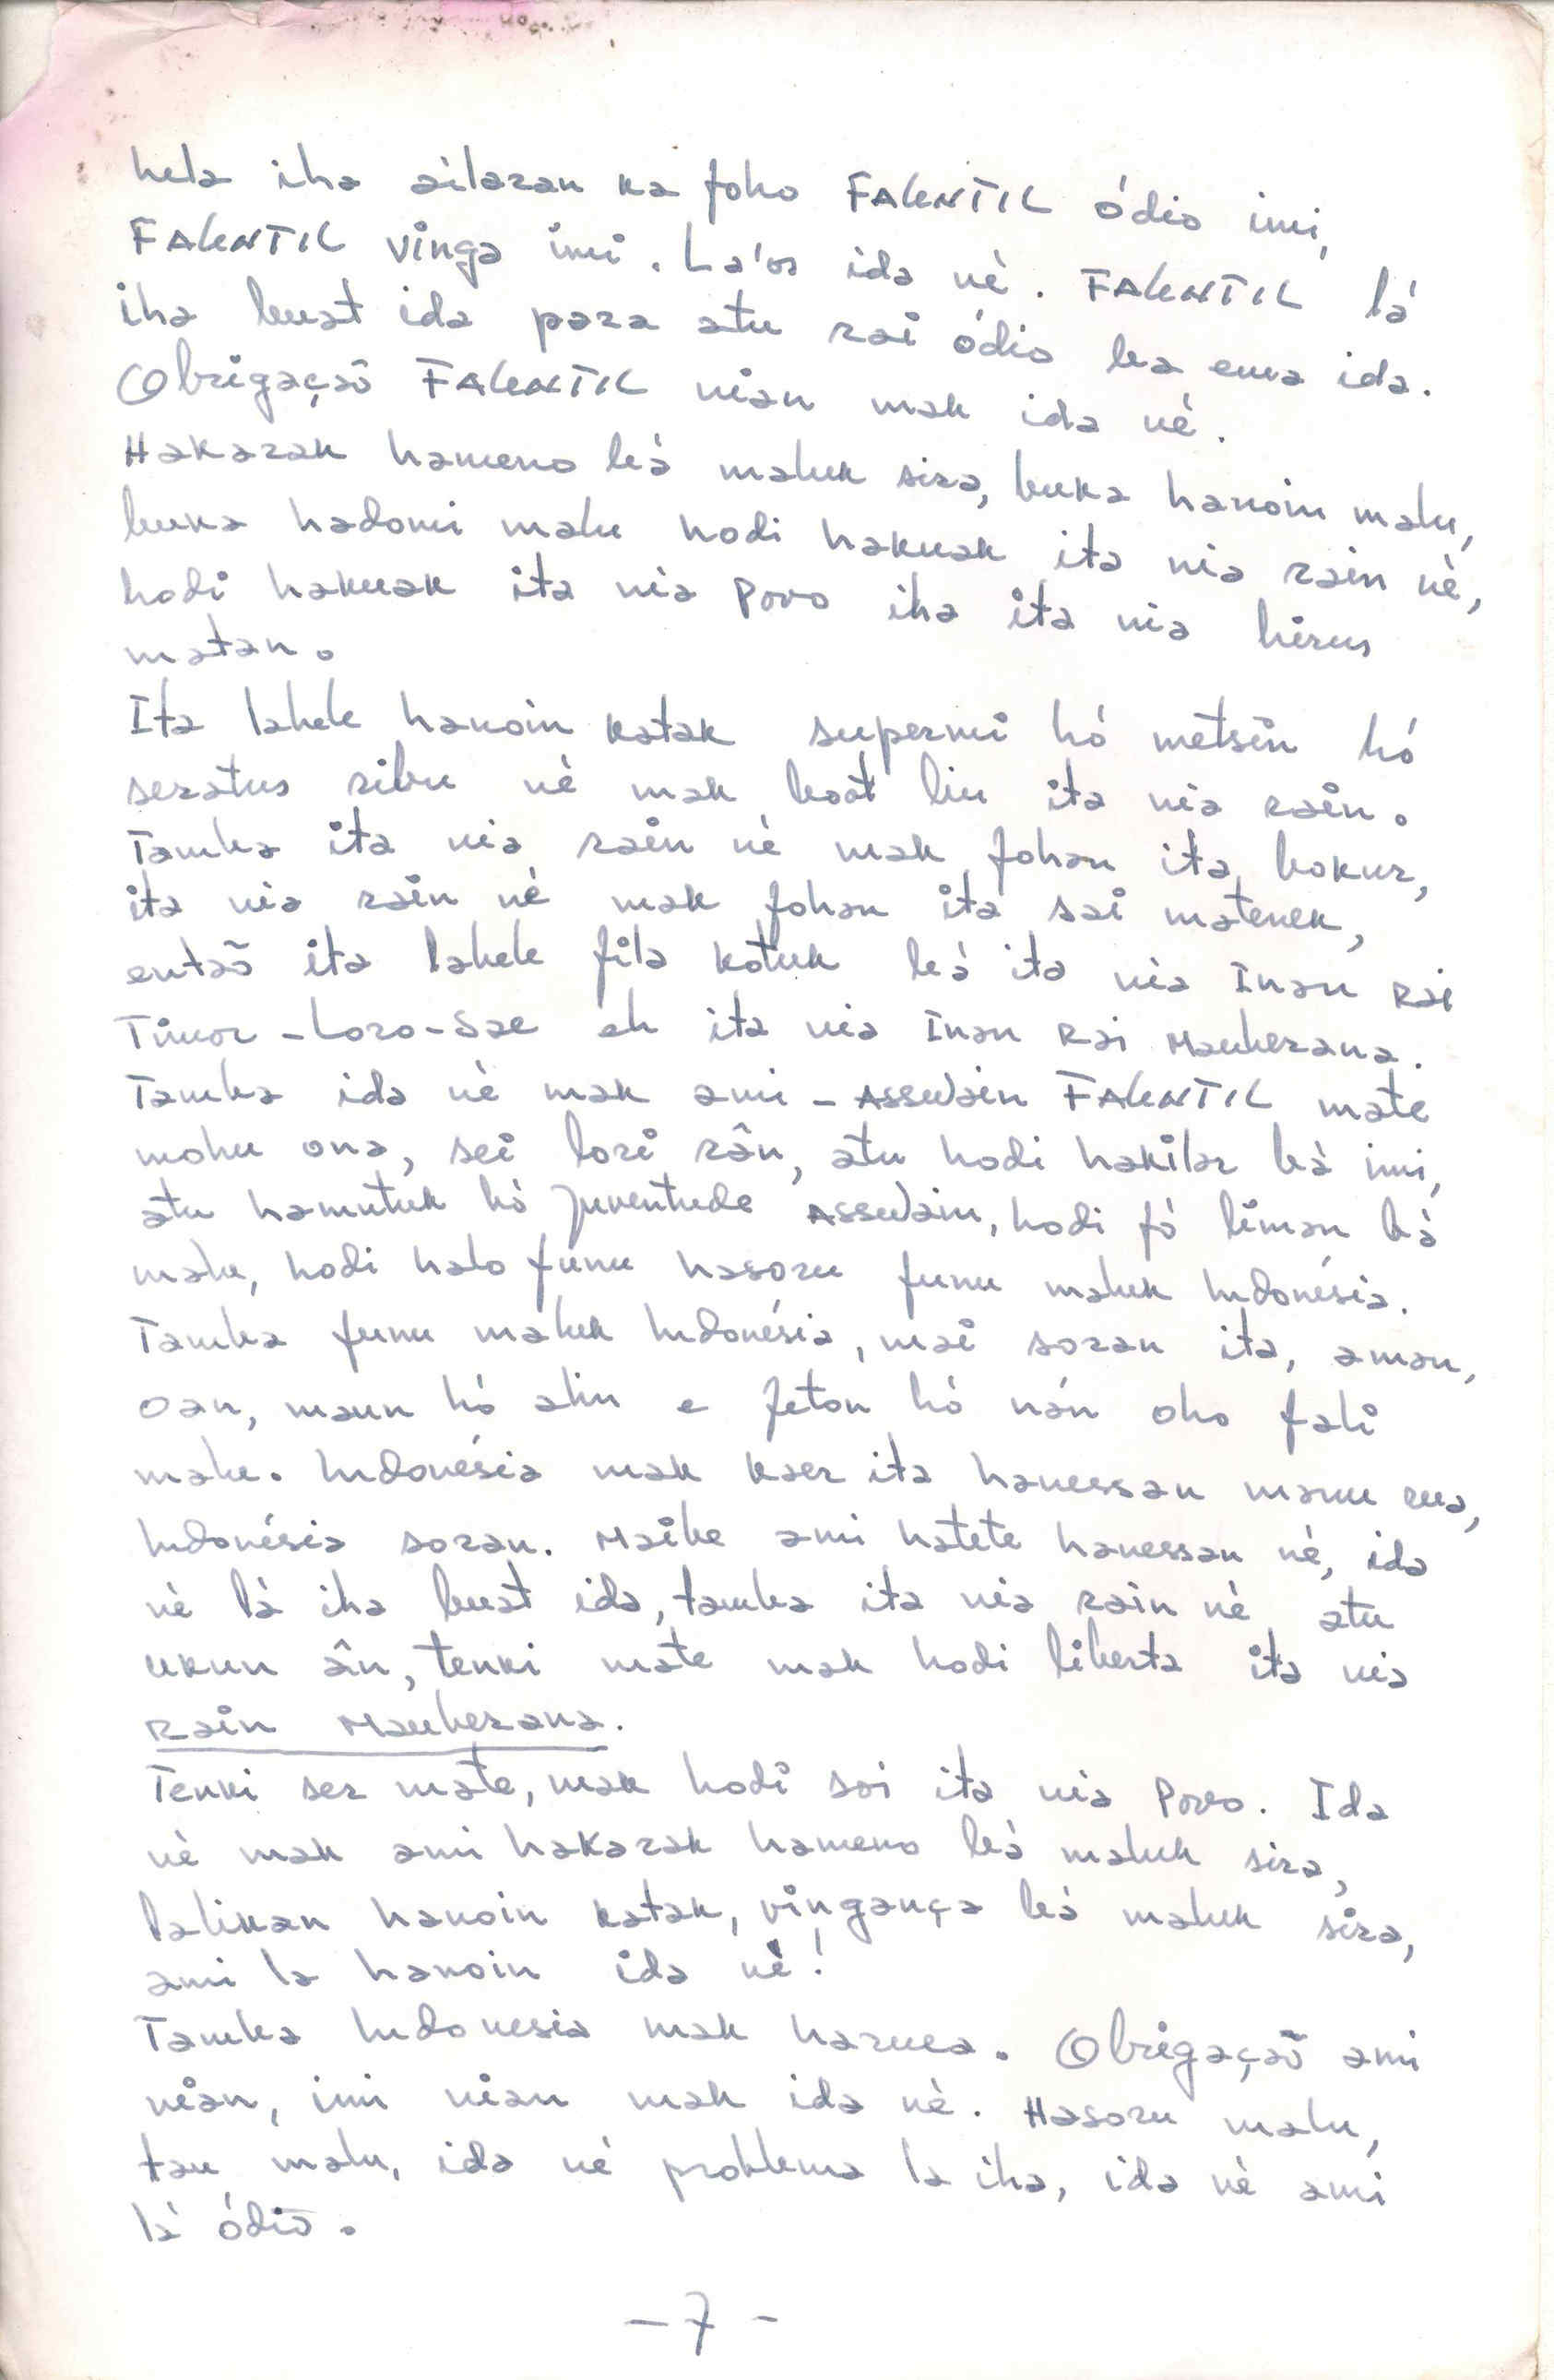 hela iha ailaran ka foho FALINTIL ódio imi,
FALINTIL vinga imi. La'os ida nè. FALINTIL lá
iha buat ida para atu rai ódio ba ema ida.
Obrigaçaõ FALINTIL nian mak ida nè.
Hakarak hameno bá maluk sira, buka hanoin malu,
buka hadomi malu hodi hakuak ita nia rain nè,
hodi hakuak ita nia Povo iha ita nia hirus
matan.
Ita labele hanoin katak supermi hó mètsin hó
seratus ribu nè mak boot liu ita nia rain.
Tamba ita nia rain nè mak fohan ita bokur,
ita nia rain nè mak fohan ita sai matenek,
entaõ ita labele fila kotuk bá ita nia Inan Rai
Timor-Loro-Sae eh ita nia Inan Rai Mauberana.
Tamba ida nè mak ami - Assuwain FALINTIL mate
mohu ona, sei lori rân, atu hodi hakilar bá imi,
atu hamutuk hó Juventude Assuwain, hodi fó liman bá
malu, hodi halo funu hasoru funu maluk Indonésia.
Tamba funu maluk Indonésia, mai soran ita, aman,
oan, maun hó alin e feton hó nán oho fali
malu. Indonésia mak kaer ita hanessan manu rua,
Indonésia soran. Maibe ami hatete hanessan nè, ida
nè lá iha buat ida, tamba ita nia rain nè atu
ukun ân, tenki mate mak hodi liberta ita nia
Rain Mauberana.
Tenki ser mate, mak hodi soi ita nia Povo. Ida
nè mak ami hakarak hameno bá maluk sira,
lalikan hanoin katak, vingança bá maluk sira,
ami la hanoin ida nè!
Tamba Indonesia mak harua. Obrigaçaõ ami
nian, imi nian mak ida nè. Hasoru malu,
tau malu, ida nè problema la iha, ida nè ami
lá ódio.
- 7 -